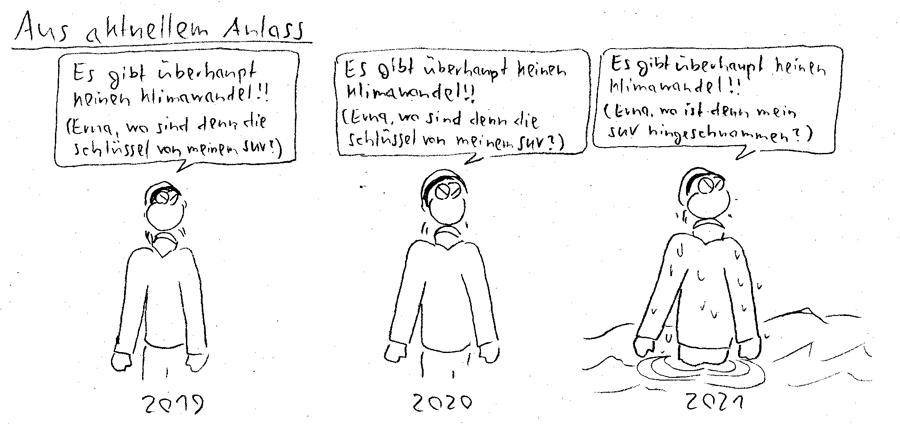 Aus aktuellem Anlass
Es gibt überhaupt
keinen Klimawandel!!
(Erna, wo sind denn die
Schlüssel von meinem SUV?)
Es gibt überhaupt keinen
Klimawandel!!
(Erna, wo sind denn die
Schlüssel von meinem SUV?)
Es gibt überhaupt keinen
Klimawandel!!
(Erna, wo ist denn mein
SUV hingeschwommen?)
2019
2020
2021